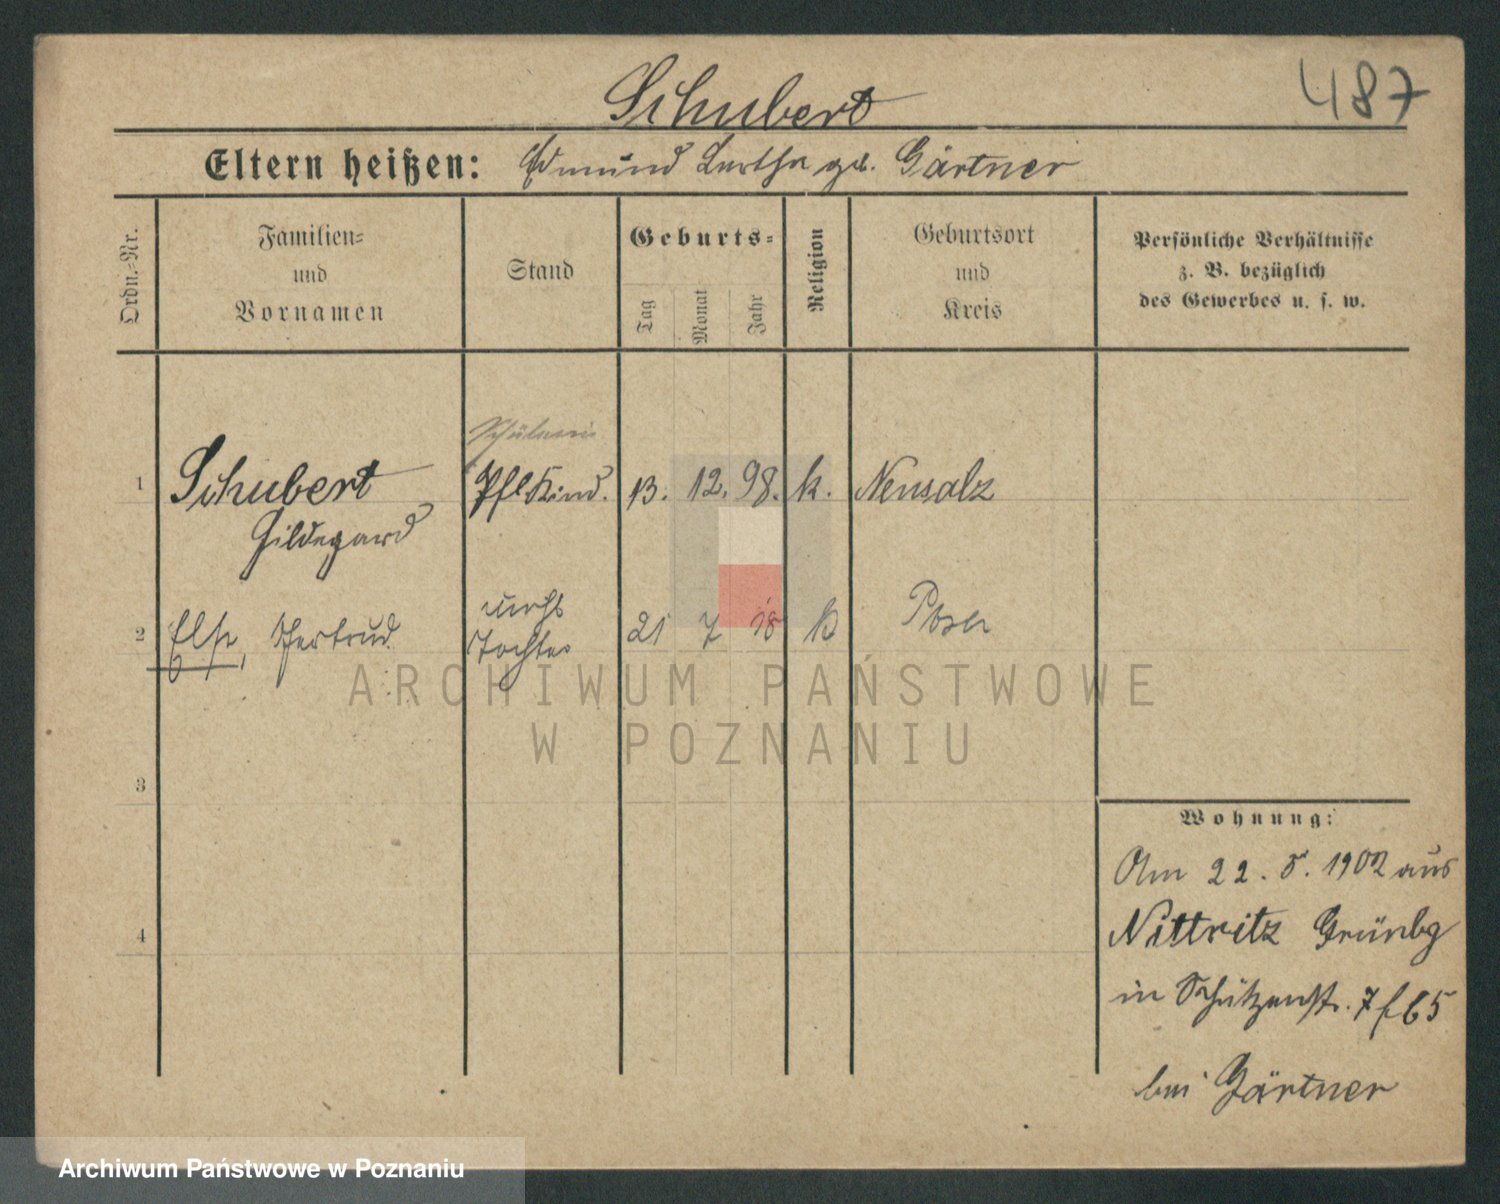 Schubert
487
Eltern heißen: Edmund Bertha geb. Gärtner
Ordn.-Nr.
Familien-
und
Vornamen
Stand
Geburts-
Tag
Monat
Jahr
Religion
Geburtsort
und
Kreis
Persönliche Verhältnisse
z. B. bezüglich
des Gewerbes u. s. w.
Schülerin
1 Schubert Pfl Kind. 13. 12. 98. k. Neusalz
Hildegard
unehl
2 Else, Gertrud Tochter 21 7 18 k Posen
3
4
Wohnung:
Am 22. 5. 1902 aus
Nittritz Grünbg
in Schützenstr. 7 f 65
bei Gärtner
ARCHIWUM PAŃSTWOWE
W POZNANIU
Archiwum Państwowe w Poznaniu